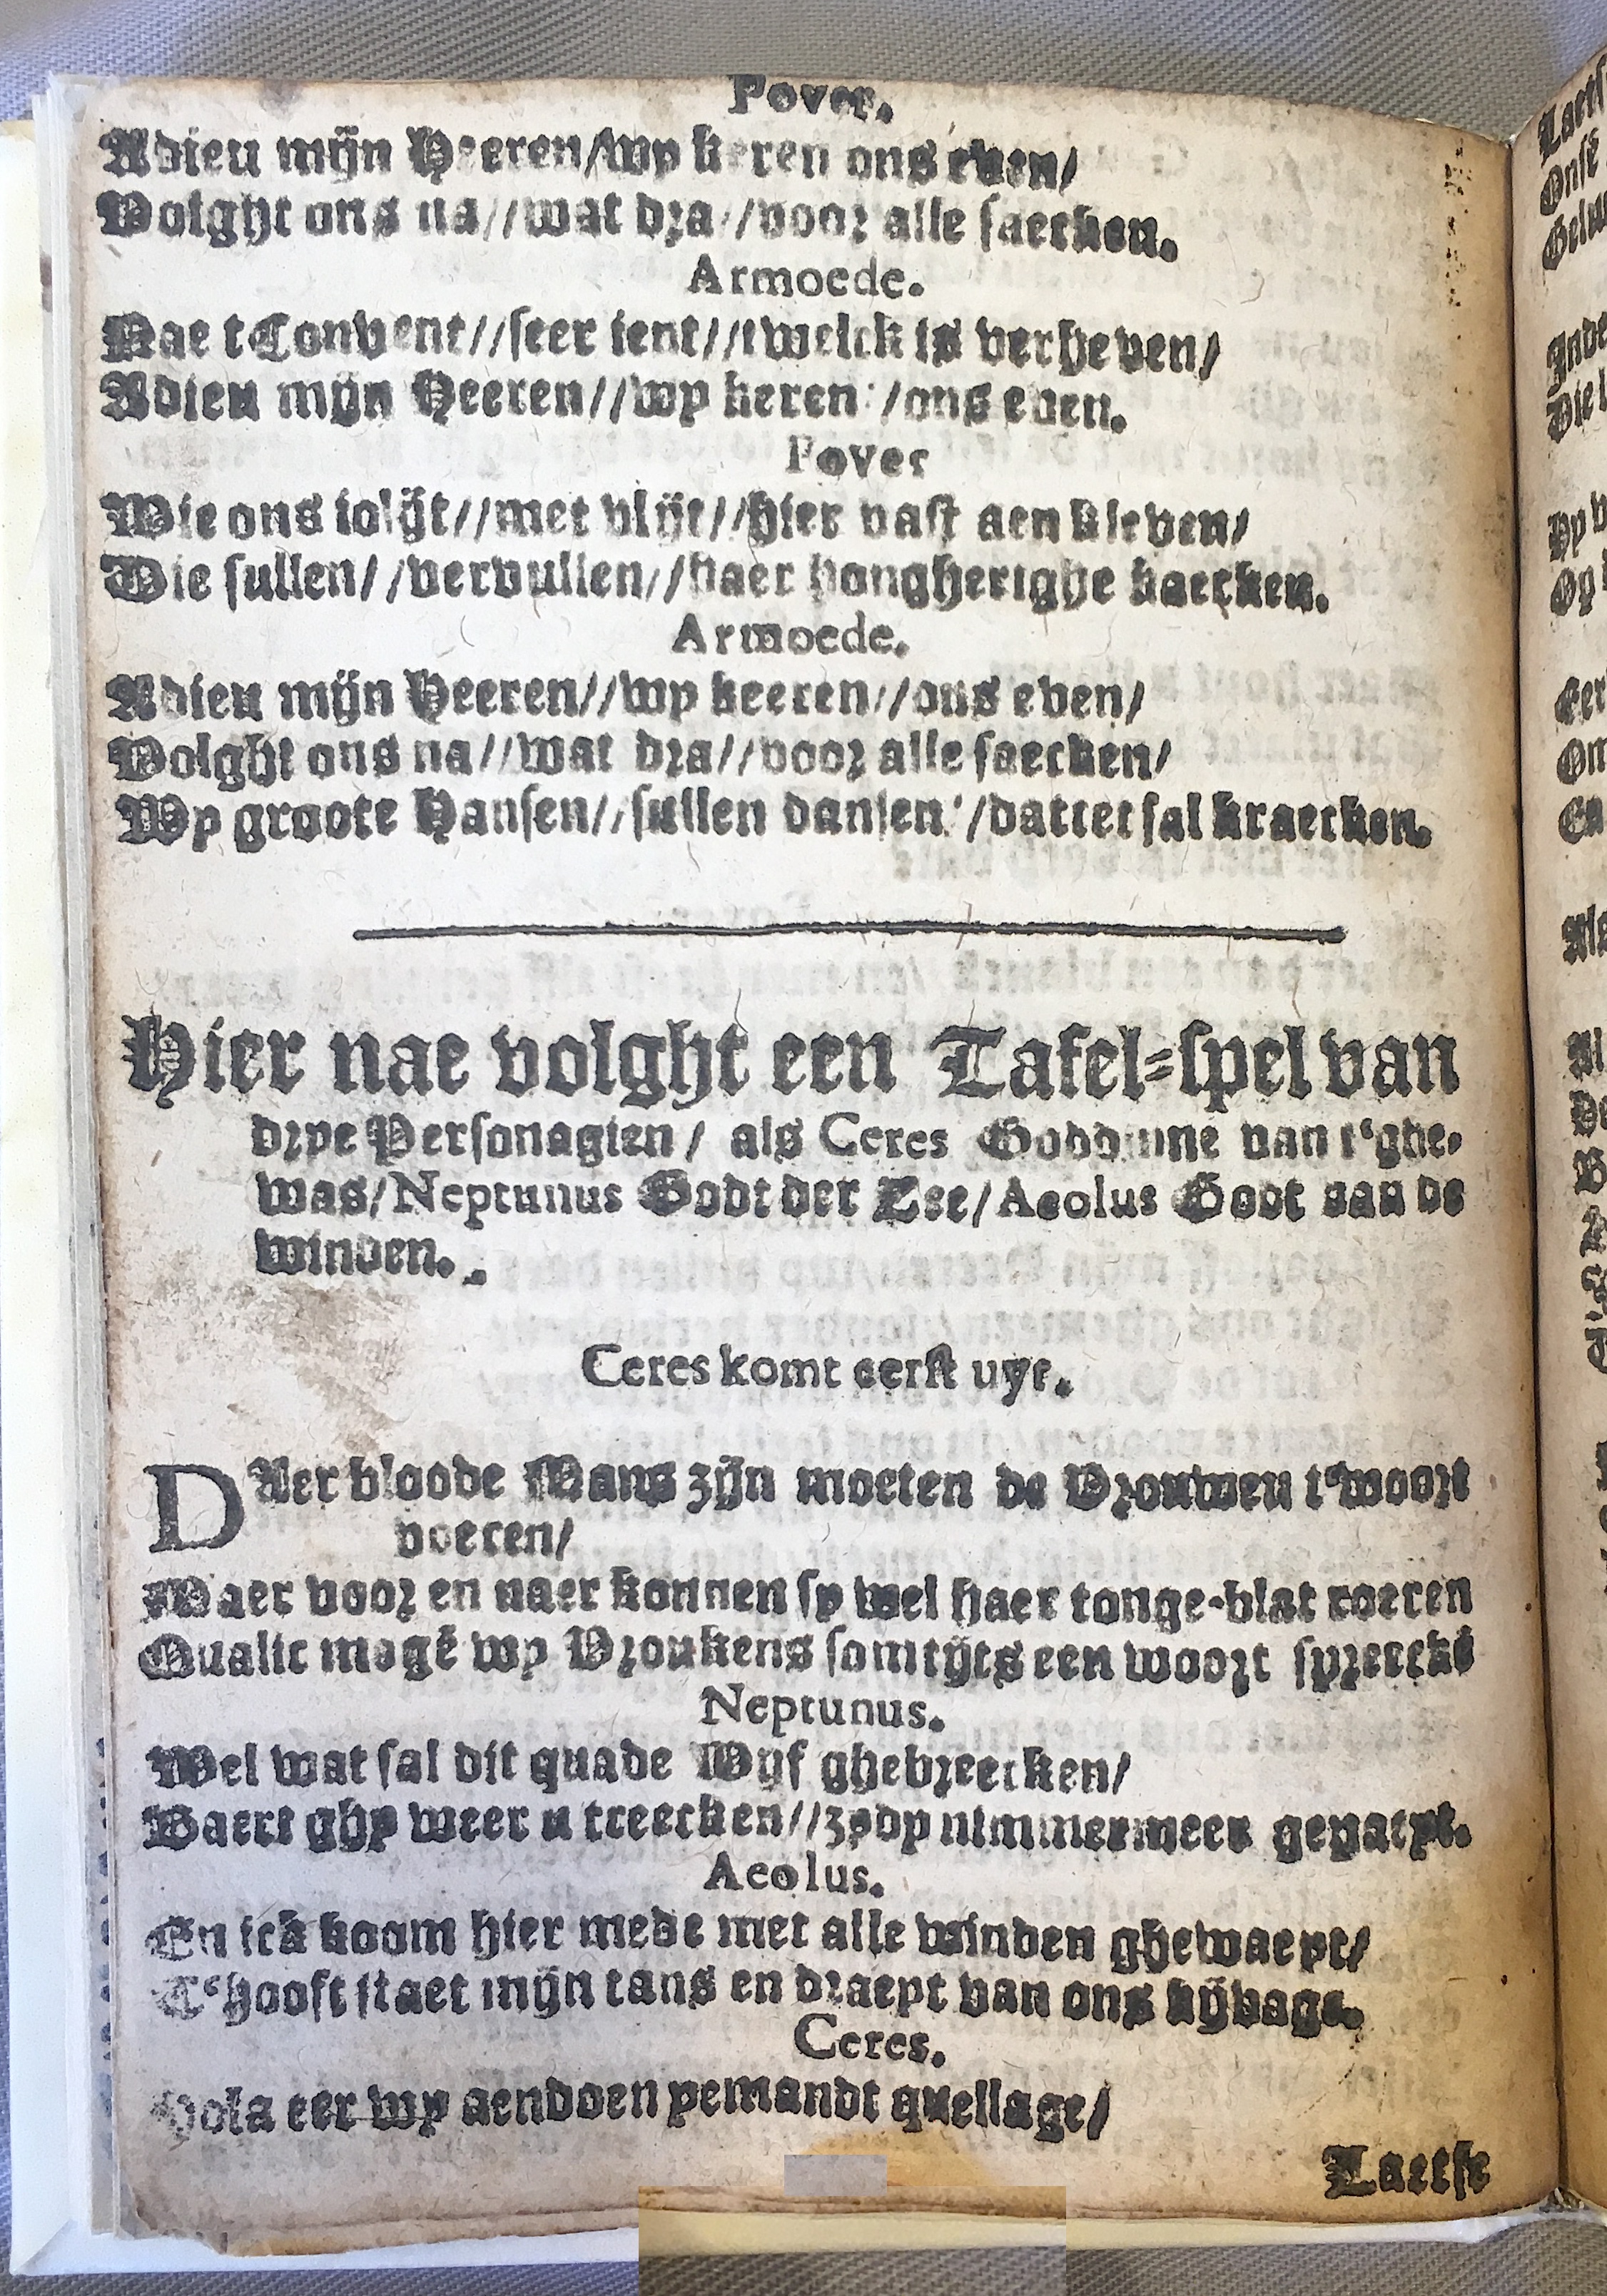 Pover.
Adieu mijn Heeren/wy keren ons even/
Volght ons na//wat dra//voor alle saecken.
Armoede.
Nae t Convent//seer jent//twelck is verheven/
Adieu mijn Heeren//wy keren//ons even.
Pover
Wie ons jolijt//met vlijt//hier vast aen kleven/
Die sullen//vervullen//haer hongherighe kaecken.
Armoede.
Adieu mijn Heeren//wy keeren//ons even/
Volght ons na//wat dra//voor alle saecken/
Wy groote Hansen//sullen dansen//dattet sal kraecken.
Hier nae volght een Tafel-spel van
drye Personagien/ als Ceres Goddinne van t'ghe-
was/Neptunus Godt der Zee/Aeolus Godt van de
winden.
Ceres komt eerst uyt.
DAer bloode Mans zijn moeten de Vrouwen t'woort
voeren/
Daer voor en naer konnen sy wel haer tonge-blat roeren
Qualic mogē wy Vroukens somtijts een woort spreeckē
Neptunus.
Wel wat sal dit quade Wijf ghebreecken/
Baert ghy weer u treecken//zydy nimmermeer gepaeyt.
Aeolus.
En ick koom hier mede met alle winden ghewaeyt/
T'hooft staet mijn tans en draeyt van ons kijvage.
Ceres.
Hola eer wy aendoen yemandt quellage/
Laetse